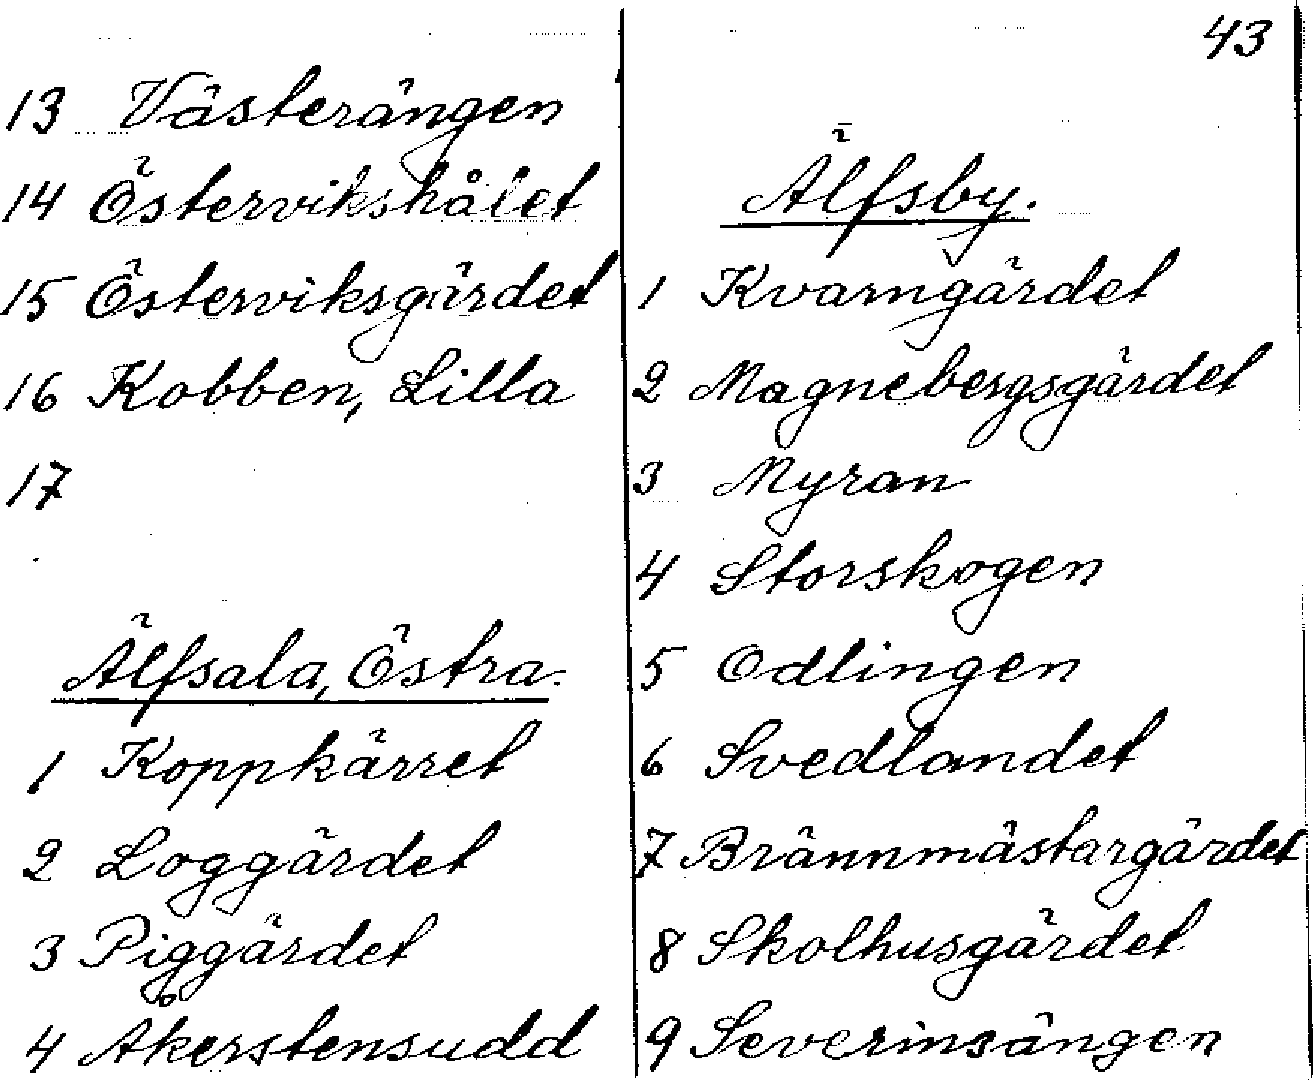 13 Västerängen
14 Östervikshålet
15 Österviksgärdet
16 Kobben, Lilla
17
Älfsala, Östra.
1 Koppkärret
2 Loggärdet
3 Piggärdet
4 Åkerstensudd
43
Älfsby.
1 Kvarngärdet
2 Magnebergsgärdet
3 Myran
4 Storskogen
5 Odlingen
6 Svedlandet
7 Brännmästargärdet
8 Skolhusgärdet
9 Severinsängen